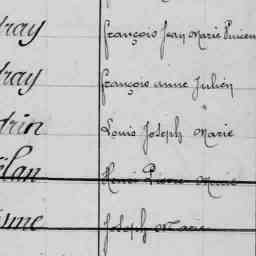 dray François Jean Marie Vincen
dray François anne Julien
drin Louis Joseph Marie
élan Henri Pierre Marie
ume Joseph Marie